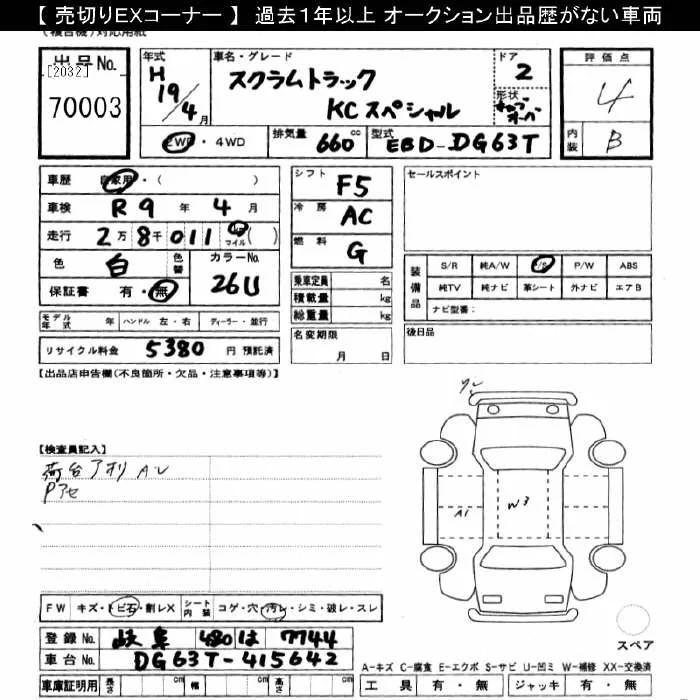 【 売切りEXコーナー 】 過去1年以上 オークション出品歴がない車両
(複合機)対応用紙
出品No. [2032] 70003
年式 H 19/4月
車名・グレード スクラムトラック KCスペシャル
ドア 2
形状
評価点 4
内装 B
2WD・4WD 排気量 660 cc 型式 EBD-DG63T
車歴 自家用・( )
車検 R 9 年 4 月
走行 2万 8千 011 km マイル ( )
色 白 色替 カラーNo. 26U
保証書 有・無
モデル年式 年 ハンドル 左・右 ディーラー・並行
リサイクル料金 5380 円 預託済
シフト F5
冷房 AC
燃料 G
乗車定員 名
積載量 kg
総重量 kg
名変期限 月 日
セールスポイント
装備品 S/R 純A/W P/S P/W ABS
純TV 純ナビ 革シート 外ナビ エアB
ナビ型番:
後日品
【出品店申告欄(不良個所・欠品・注意事項等)】
【検査員記入】
荷台アオリ AU
Pアセ
A1
W3
FW キズ・トビ石・割レX シート内装 コゲ・穴・汚レ・シミ・破レ・スレ
登録No. 岐阜 480 は 7744
車台No. DG63T-415642
車庫証明用 長さ cm 幅 cm 高さ cm
スペア
A-キズ C-腐食 E-エクボ S-サビ U-凹ミ W-補修 XX-交換済
工具 有・無 ジャッキ 有・無